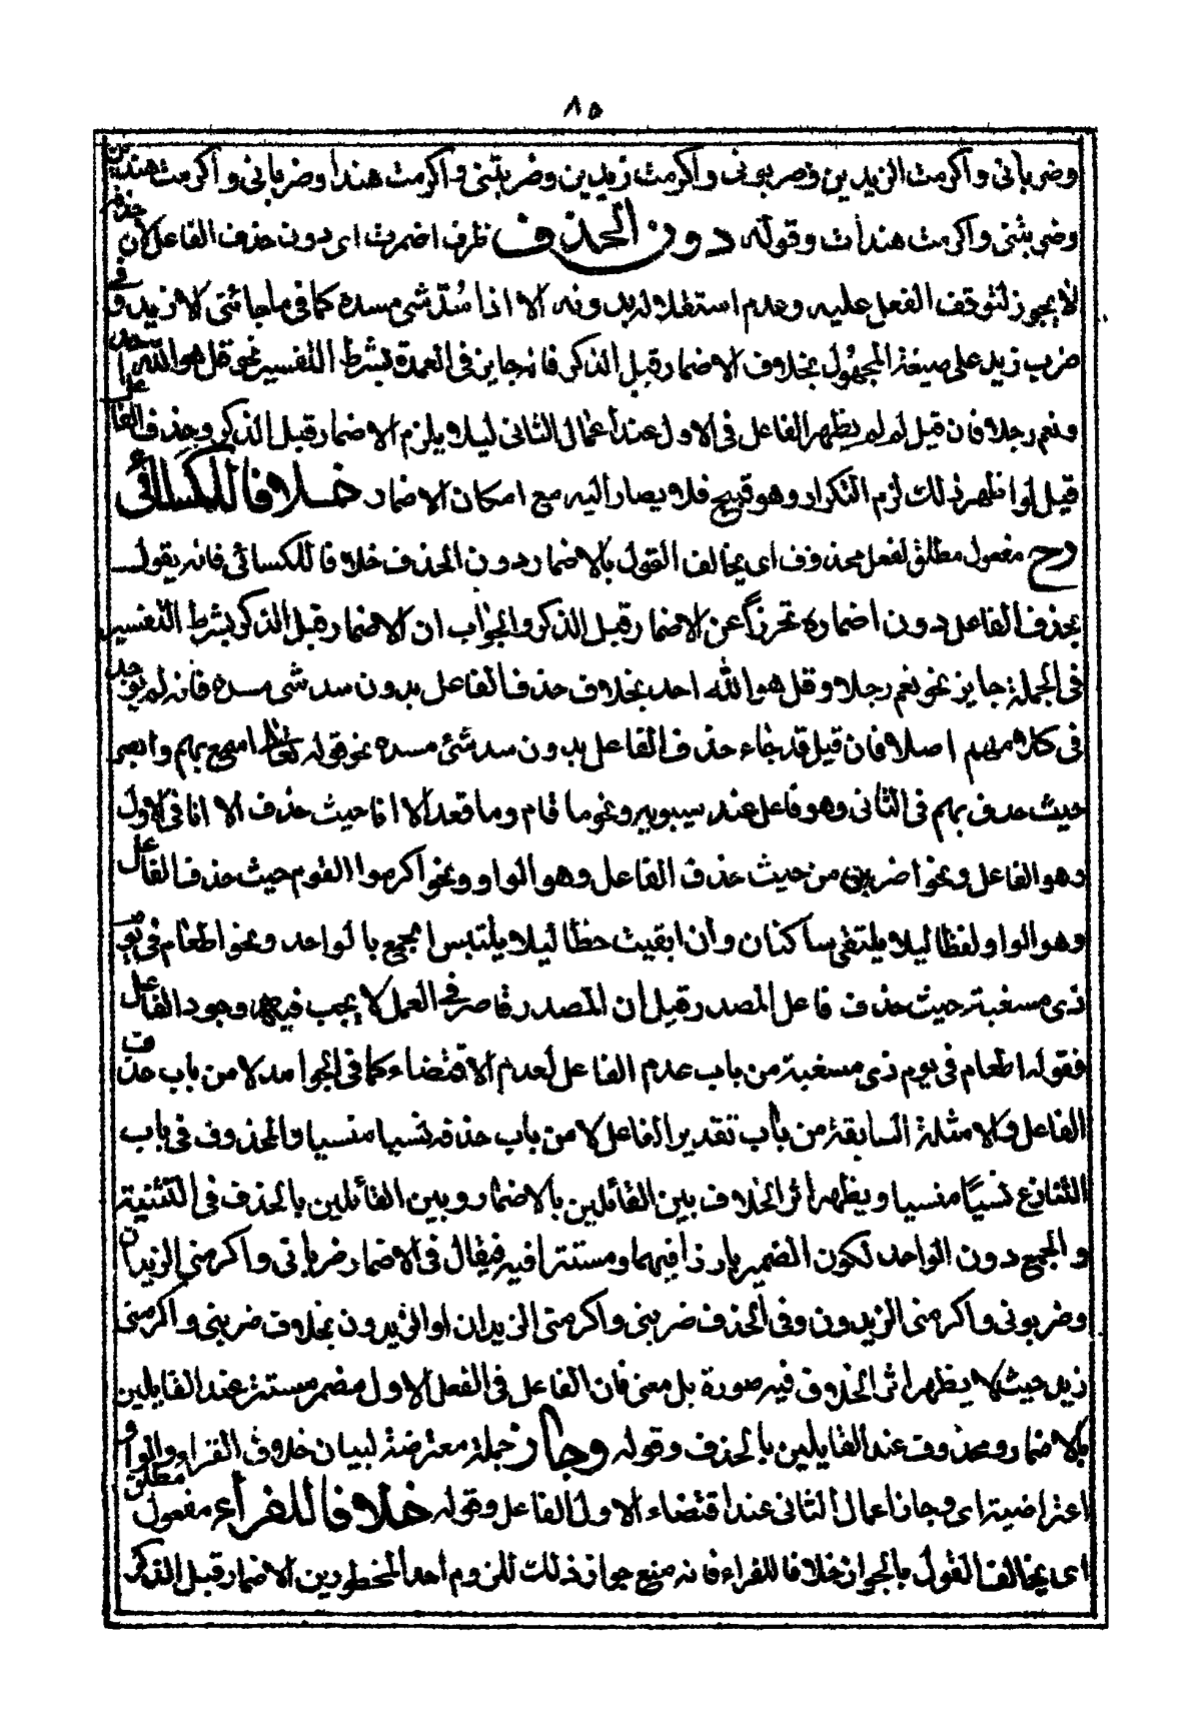 ٨٥
وضرباني واكرمت الزيدين وضربوني واكرمت زيدين وضربتني واكرمت هندا وضرباني واكرمت هندين
وضربتني واكرمت هندات وقوله دون الحذف ظرف اضمرت اى دون حذف الفاعل لان حذفه
لا يجوز لتوقف الفعل عليه وعدم استقلاله بدونه الا اذا سُدّ شئ مسده كما فى ما جائنى الا زيد وفى
ضرب زيد على صيغة المجهول بخلاف الاضمار قبل الذكر فانه جايز فى العمدة بشرط التفسير نحو قل هو الله احد
ونعم رجلا فان قيل لم لم يظهر الفاعل فى الاول عند اعمال الثانى ليلا يلزم الاضمار قبل الذكر وحذف الفاعل
قيل لو اظهر ذلك لزم التكرار وهو قبيح فلا يصار اليه مع امكان الاضمار خلافا للكسائى
رح مفعول مطلق لفعل محذوف اى يخالف القول بالاضمار دون الحذف خلافا للكسائى فانه يقول
بحذف الفاعل دون اضماره تحرزاً عن الاضمار قبل الذكر والجواب ان الاضمار قبل الذكر بشرط التفسير
فى الجملة جايز نحو نعم رجلا وقل هو الله احد بخلاف حذف الفاعل بدون سد شئ مسده فانه لم يوجد
فى كلامهم اصلا فان قيل قد جاء حذف الفاعل بدون سد شئ مسده نحو قوله تعالى اسمع بهم وابصر
حيث حذف بهم فى الثانى وهو فاعل عند سيبويه ونحو ما قام وما قعد الا انا حيث حذف الا انا فى الاول
وهو الفاعل ونحو اضربن من حيث حذف الفاعل وهو الواو ونحو اكرموا القوم حيث حذف الفاعل
وهو الواو لفظا ليلا يلتقى ساكنان وان ابقيت خطا ليلا يلتبس الجمع بالواحد ونحو اطعام فى يوم
ذى مسغبة حيث حذف فاعل المصدر قيل ان المصدر قاصر فى العمل لا يجب فيه وجود الفاعل
فقوله اطعام فى يوم ذى مسغبة من باب عدم الفاعل لعدم الاقتضاء كما فى الجوامد لا من باب حذف
الفاعل والامثلة السابقة من باب تقدير الفاعل لا من باب حذفه نسيا منسيا والمحذوف فى باب
التنازع نسيًا منسيا ويظهر اثر الخلاف بين القائلين بالاضمار وبين القائلين بالحذف فى التثنية
والجمع دون الواحد لكون الضمير بارزا فيهما ومستترا فيه فيقال فى الاضمار ضرباني واكرمنى الزيدان
وضربونى واكرمنى الزيدون وفى الحذف ضربنى واكرمنى الزيدان او الزيدون بخلاف ضربنى واكرمنى
زيد حيث لا يظهر اثر الخلاف فيه صورة بل معنى فان الفاعل فى الفعل الاول مضمر مستتر عند القايلين
بالاضمار ومحذوف عند القايلين بالحذف وقوله وجاز جملة معترضة لبيان خلاف الفراء والواو
اعتراضية اى وجاز اعمال الثانى عند اقتضاء الاول الفاعل وقوله خلافا للفراء مفعول مطلق
اى يخالف القول بالجواز خلافا للفراء فانه منع جواز ذلك للزوم احد المحظورين الاضمار قبل الذكر